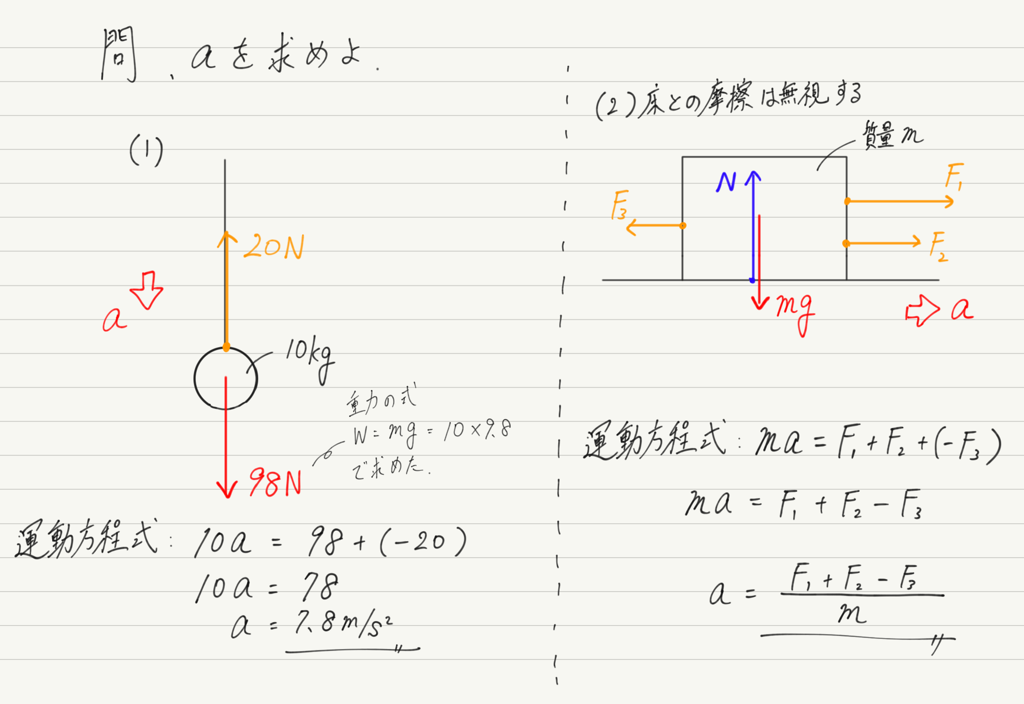 問、aを求めよ.
(1)
20N
a
10kg
重力の式
W=mg=10×9.8
で求めた.
98N
運動方程式: 10a = 98+(-20)
10a = 78
a = 7.8m/s²
(2)床との摩擦は無視する
質量m
N
F₁
F₃
F₂
mg
a
運動方程式: ma = F₁+F₂+(-F₃)
ma = F₁+F₂-F₃
a = F₁+F₂-F₃
m